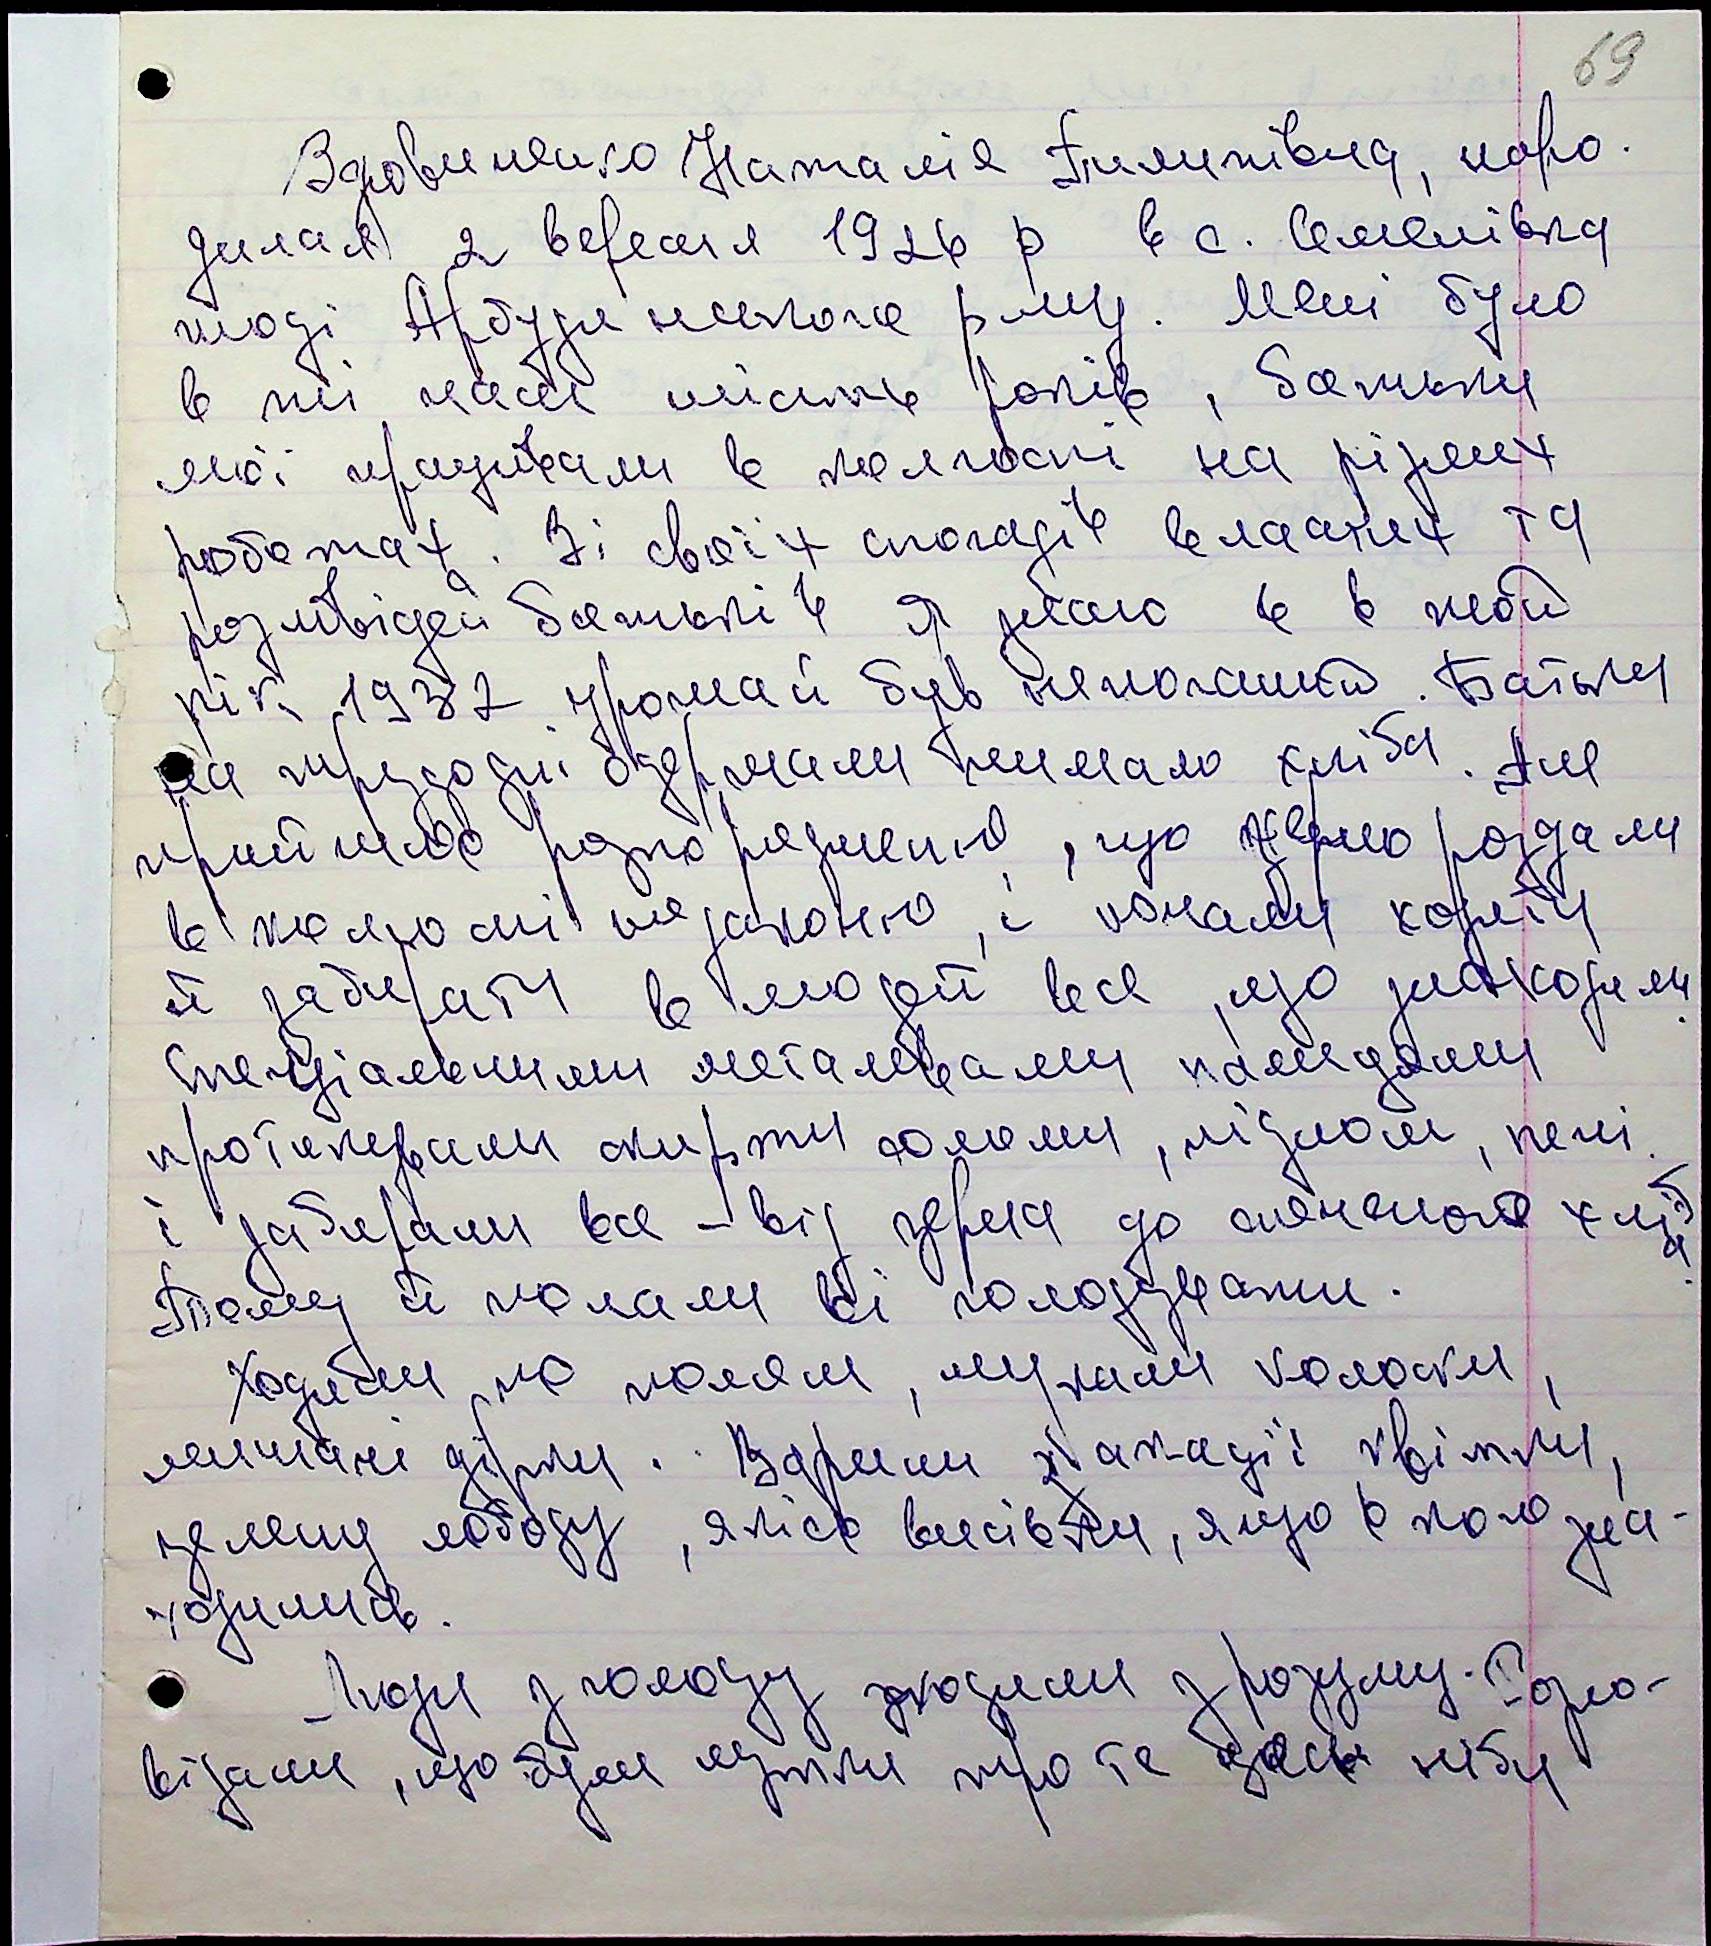 69
Вдовиченко Наталія Пилипівна, наро-
дилася 2 вересня 1926 р в с. Семенівка
тоді Арбузинського р-ну. Мені було
в ті часи шість років, батьки
мої працювали в колгоспі на різних
роботах. Зі своїх спогадів власних та
розповідей батьків я знаю в той
рік 1932 урожай був непоганий. Батьки
на трудодні одержали чимало хліба. Але
прийшло розпорядження, що зерно роздали
в колгоспі незаконно, і почали ходити
й забирати в людей все, що знаходили.
Спеціальними металевами
протикували скирти соломи, підлоги, печі
і забирали все – від зерна до спеченого хліба.
Тому й почали всі голодувати.
Ходили по полям, шукали колоски,
мишачі дірки. Варили з акації квітки,
зелену лободу, якісь висівки, якщо в кого зна-
ходились.
Люди з голоду сходили з розуму. Розпо-
відали, що були чутки про те десь ніби